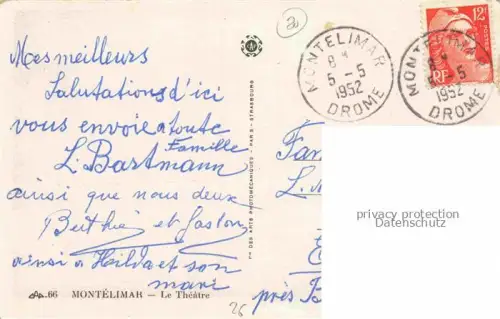 Mes meilleurs
salutations d'ici
vous envoie a toute
Famille
L. Bartmann
ainsi que nous deux
Berthe et Gaston
ainsi a Hilda et son
mari
66 MONTÉLIMAR – Le Théâtre
Cie DES ARTS PHOTOMÉCANIQUES - PARIS - STRASBOURG
20
MONTELIMAR
8 H
5 - 5
1952
DROME
MONTELIMAR
5
1952
DROME
12F
RF
Fam
L.
près B
26
privacy protection
Datenschutz